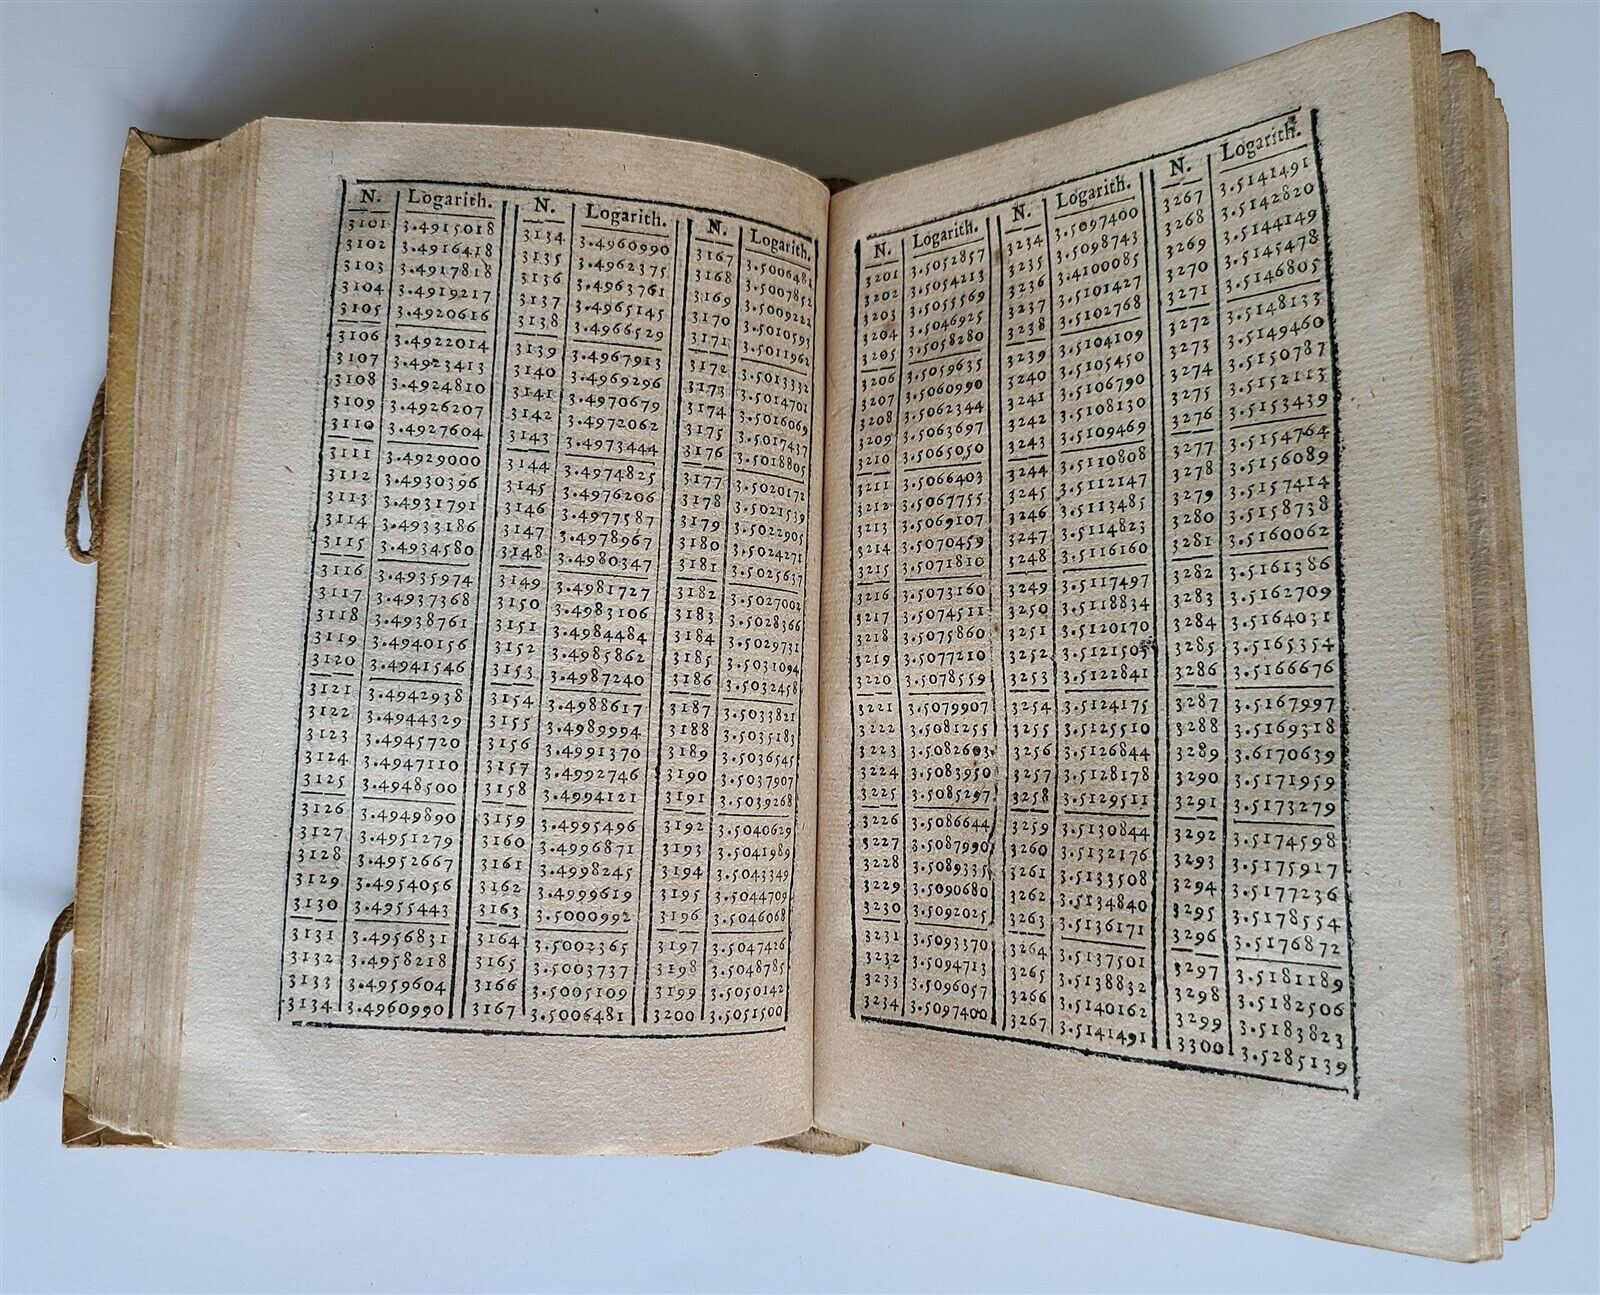 N. Logarith. N. Logarith. N. Logarith.
3101 3.4915018 3134 3.4960990 3167 3.5006481
3102 3.4916418 3135 3.4962375 3168 3.5007852
3103 3.4917818 3136 3.4963761 3169 3.5009222
3104 3.4919217 3137 3.4965145 3170 3.5010593
3105 3.4920616 3138 3.4966529 3171 3.5011962
3106 3.4922014 3139 3.4967913 3172 3.5013332
3107 3.4923413 3140 3.4969296 3173 3.5014701
3108 3.4924810 3141 3.4970679 3174 3.5016069
3109 3.4926207 3142 3.4972062 3175 3.5017437
3110 3.4927604 3143 3.4973444 3176 3.5018805
3111 3.4929000 3144 3.4974825 3177 3.5020172
3112 3.4930396 3145 3.4976206 3178 3.5021539
3113 3.4931791 3146 3.4977587 3179 3.5022905
3114 3.4933186 3147 3.4978967 3180 3.5024271
3115 3.4934580 3148 3.4980347 3181 3.5025637
3116 3.4935974 3149 3.4981727 3182 3.5027002
3117 3.4937368 3150 3.4983106 3183 3.5028366
3118 3.4938761 3151 3.4984484 3184 3.5029731
3119 3.4940156 3152 3.4985862 3185 3.5031094
3120 3.4941546 3153 3.4987240 3186 3.5032458
3121 3.4942938 3154 3.4988617 3187 3.5033821
3122 3.4944329 3155 3.4989994 3188 3.5035183
3123 3.4945720 3156 3.4991370 3189 3.5036545
3124 3.4947110 3157 3.4992746 3190 3.5037907
3125 3.4948500 3158 3.4994121 3191 3.5039268
3126 3.4949890 3159 3.4995496 3192 3.5040629
3127 3.4951279 3160 3.4996871 3193 3.5041989
3128 3.4952667 3161 3.4998245 3194 3.5043349
3129 3.4954056 3162 3.4999619 3195 3.5044709
3130 3.4955443 3163 3.5000992 3196 3.5046068
3131 3.4956831 3164 3.5002365 3197 3.5047426
3132 3.4958218 3165 3.5003737 3198 3.5048785
3133 3.4959604 3166 3.5005109 3199 3.5050142
3134 3.4960990 3167 3.5006481 3200 3.5051500
N. Logarith. N. Logarith. N. Logarith.
3201 3.5052857 3234 3.5097400 3267 3.5141491
3202 3.5054213 3235 3.5098743 3268 3.5142820
3203 3.5055569 3236 3.4100085 3269 3.5144149
3204 3.5046925 3237 3.5101427 3270 3.5145478
3205 3.5058280 3238 3.5102768 3271 3.5146805
3206 3.5059635 3239 3.5104109 3272 3.5148133
3207 3.5060990 3240 3.5105450 3273 3.5149460
3208 3.5062344 3241 3.5106790 3274 3.5150787
3209 3.5063697 3242 3.5108130 3275 3.5152113
3210 3.5065050 3243 3.5109469 3276 3.5153439
3211 3.5066403 3244 3.5110808 3277 3.5154764
3212 3.5067755 3245 3.5112147 3278 3.5156089
3213 3.5069107 3246 3.5113485 3279 3.5157414
3214 3.5070459 3247 3.5114823 3280 3.5158738
3215 3.5071810 3248 3.5116160 3281 3.5160062
3216 3.5073160 3249 3.5117497 3282 3.5161386
3217 3.5074511 3250 3.5118834 3283 3.5162709
3218 3.5075860 3251 3.5120170 3284 3.5164031
3219 3.5077210 3252 3.5121505 3285 3.5165354
3220 3.5078559 3253 3.5122841 3286 3.5166676
3221 3.5079907 3254 3.5124175 3287 3.5167997
3222 3.5081255 3255 3.5125510 3288 3.5169318
3223 3.5082603 3256 3.5126844 3289 3.6170639
3224 3.5083950 3257 3.5128178 3290 3.5171959
3225 3.5085297 3258 3.5129511 3291 3.5173279
3226 3.5086644 3259 3.5130844 3292 3.5174598
3227 3.5087990 3260 3.5132176 3293 3.5175917
3228 3.5089335 3261 3.5133508 3294 3.5177236
3229 3.5090680 3262 3.5134840 3295 3.5178554
3230 3.5092025 3263 3.5136171 3296 3.5176872
3231 3.5093370 3264 3.5137501 3297 3.5181189
3232 3.5094713 3265 3.5138832 3298 3.5182506
3233 3.5096057 3266 3.5140162 3299 3.5183823
3234 3.5097400 3267 3.5141491 3300 3.5285139